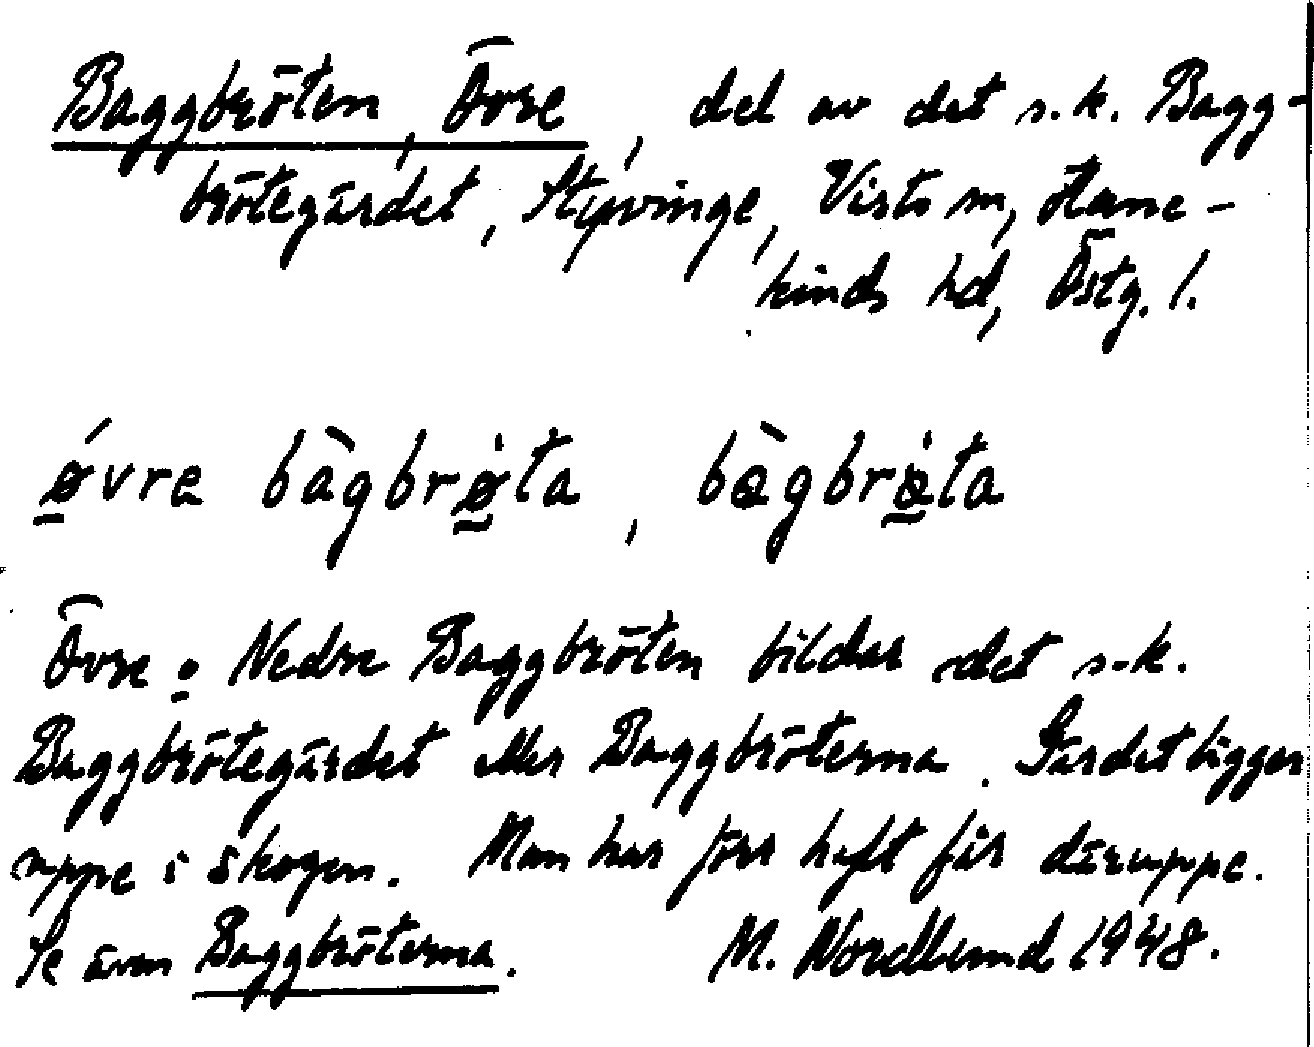 Baggbröten, Övre, del av det s.k. Bagg-
brötegärdet, Styvinge, Vists sn, Hane-
kinds hd, Östg. l.
ǿvre bàgbrø̀ta, bàgbrö̀ta
Övre o Nedre Baggbröten bildar det s.k.
Baggbrötegärdet eller Baggbröterna. Gärdet ligger
uppe i skogen. Man har förr haft får däruppe.
Se även Baggbröterna. M. Nordlund 1948.